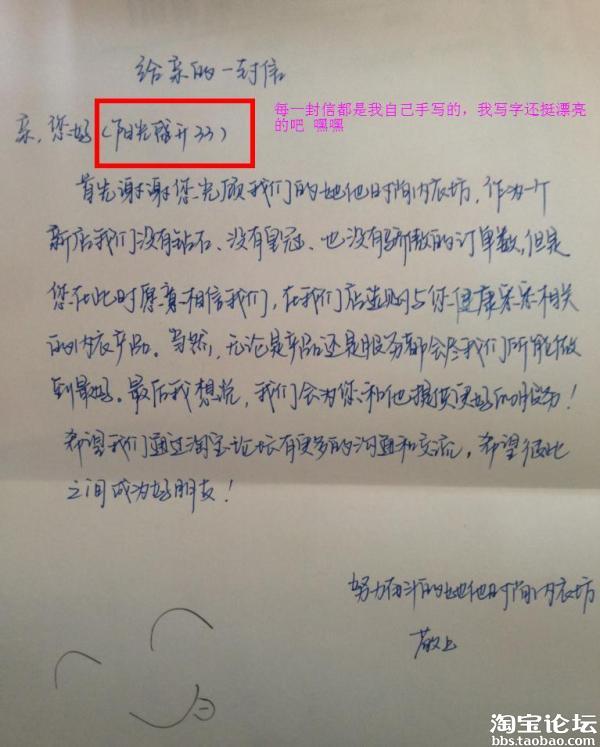 给亲的一封信
亲，您好（阳光盛开33）
每一封信都是我自己手写的，我写字还挺漂亮
的吧 嘿嘿
首先谢谢您光顾我们的她他时尚内衣坊，作为一个
新店我们没有钻石、没有皇冠、也没有骄傲的订单数，但是
您在此时愿意相信我们，在我们店选购与您健康息息相关
的内衣产品。当然，无论是产品还是服务都会尽我们所能做
到最好。最后我想说，我们会为您和他提供更好的服务！
希望我们通过淘宝论坛有更多的沟通和交流，希望彼此
之间成为好朋友！
努力奋斗的她他时尚内衣坊
敬上
淘宝论坛
bbs.taobao.com